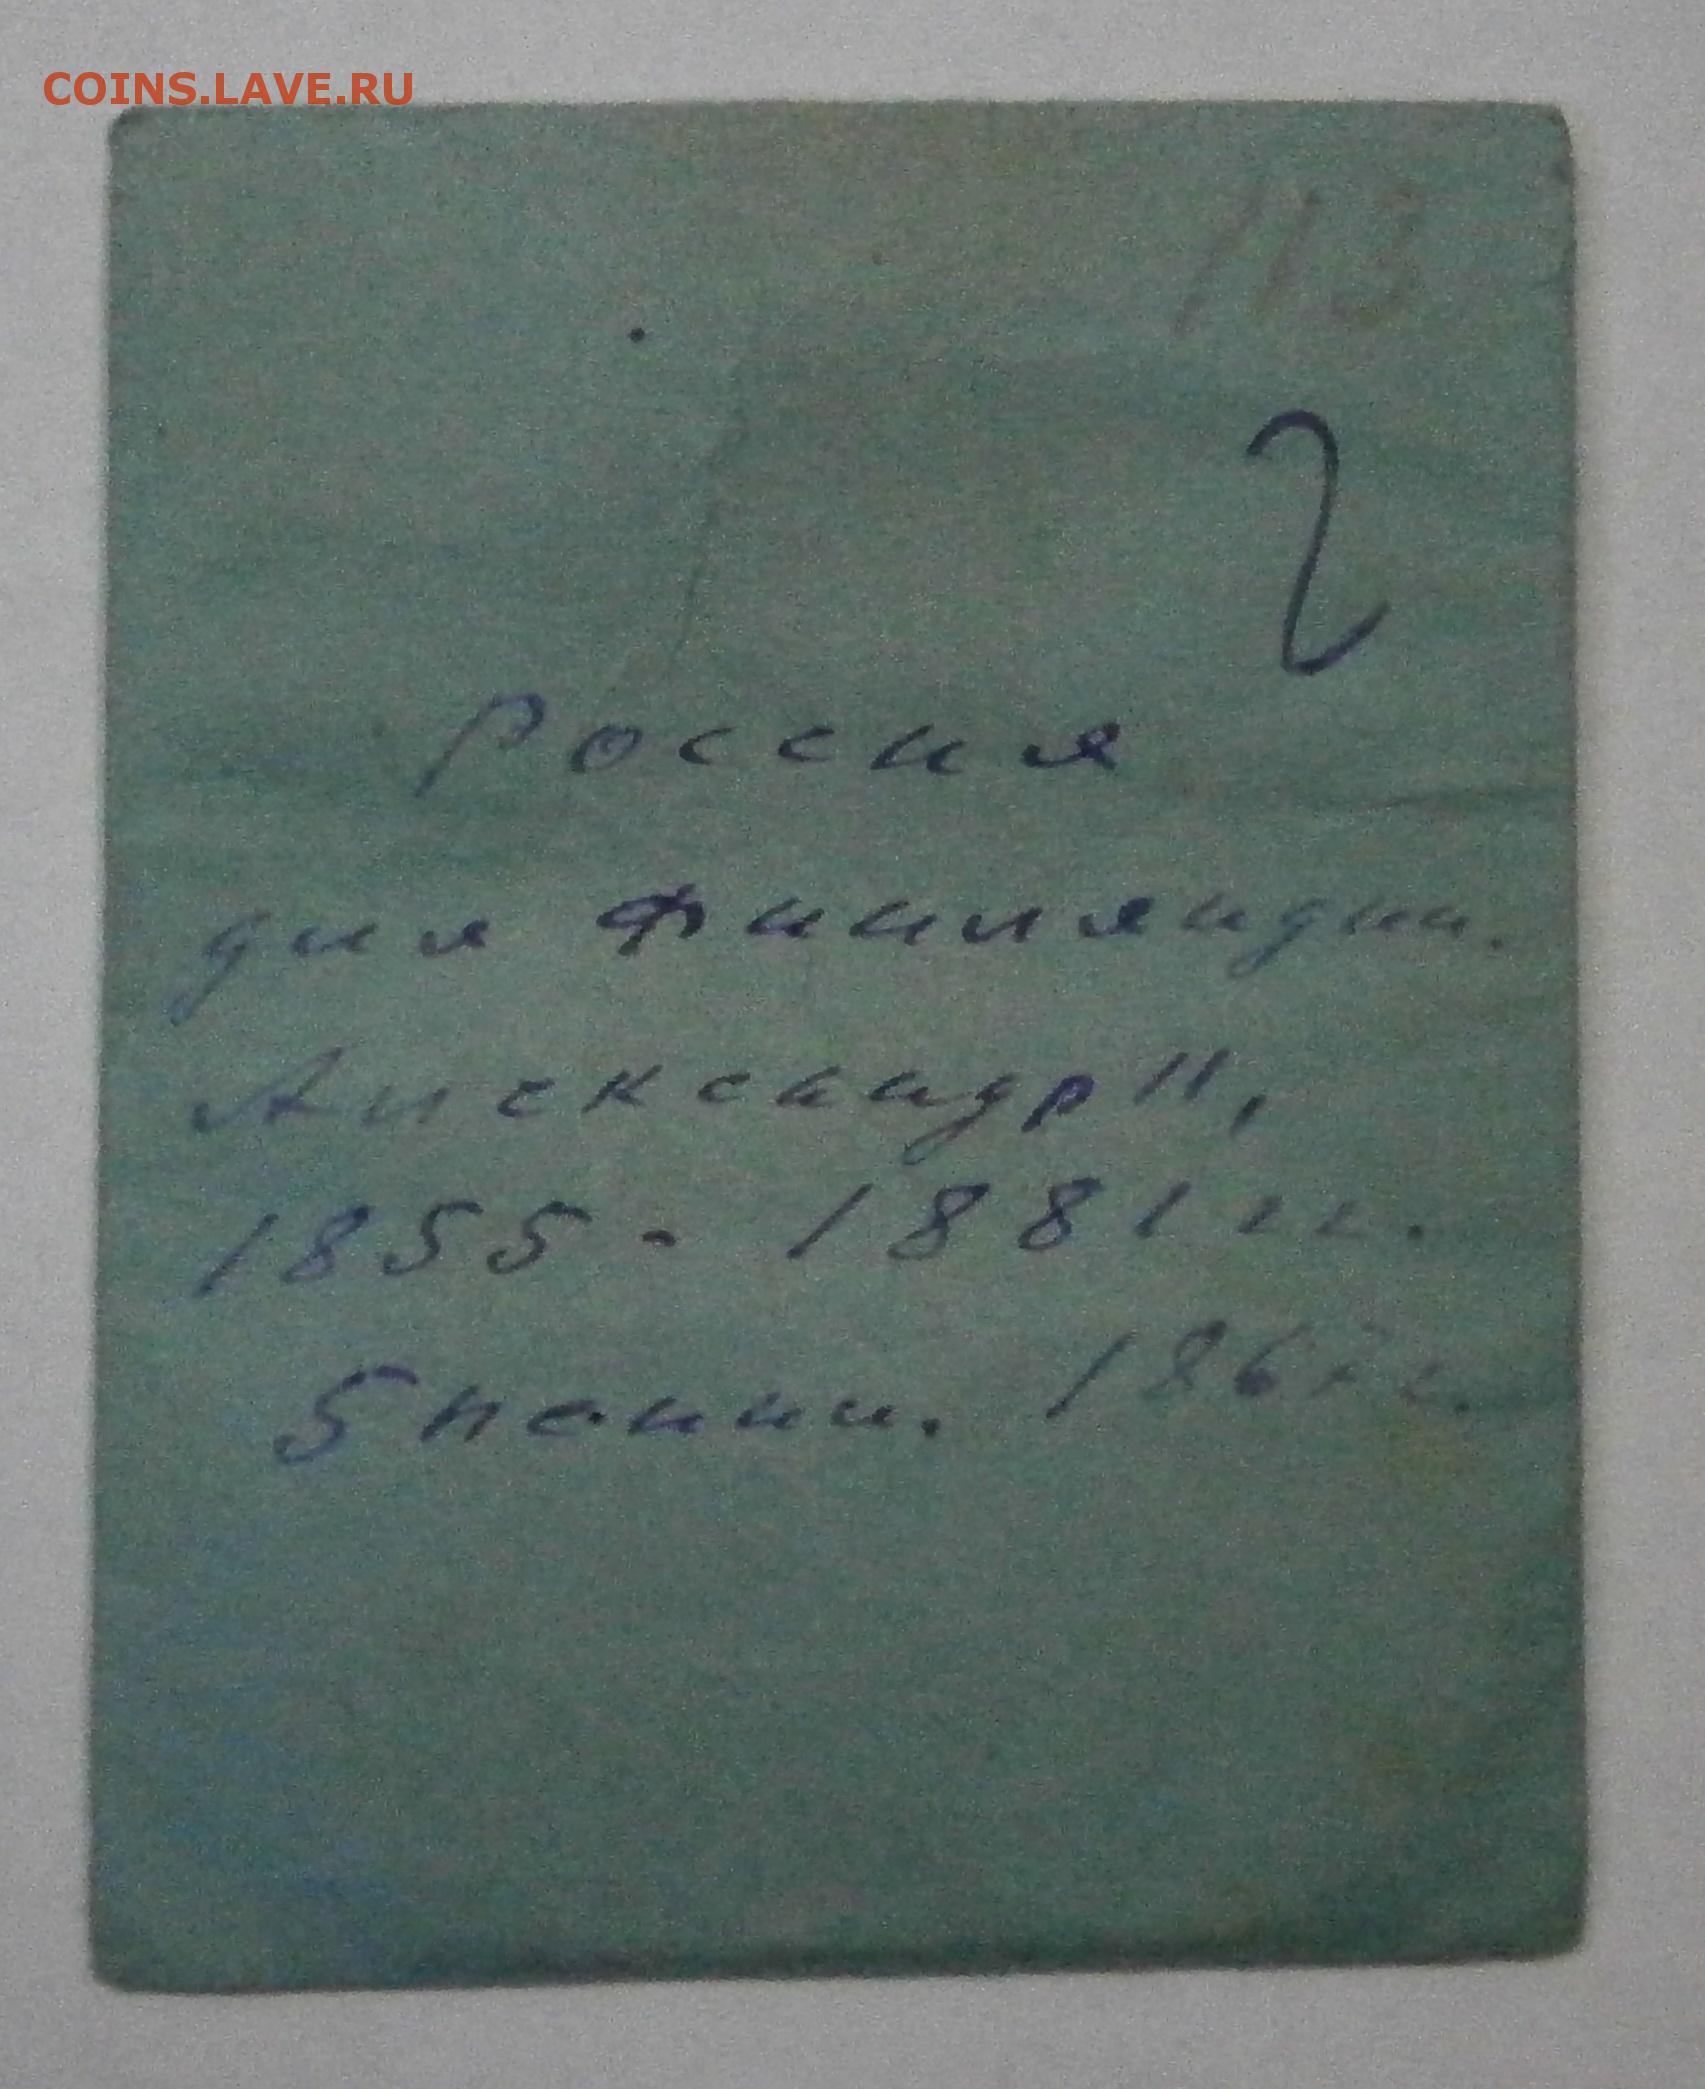 COINS.LAVE.RU
113
г
Россия
для Финляндии.
Александр II,
1855 - 1881 гг.
5 пенни. 1867 г.